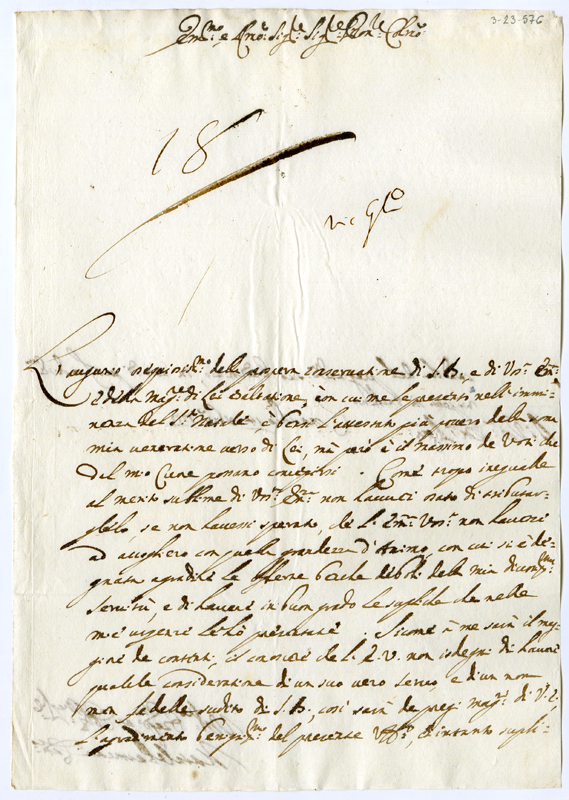 3-23-576
Em.mo e Rev.mo Sig.re Sig.re P.ron Col.mo
18
Vic G.lo
L'augurio ossequiosis.mo della prospera conservatione di S. B., e di Vr.a Em.a
e della mag.re di Lei esaltatione, con cui me le presento nell'immi-
nenza del S.to Natale è bensì l'attestato più povero della
mia veneratione verso di Lei, mà però è il massimo de Voti che
dal mio Cuore possano concepirsi. Come troppo ineguale
al merito sublime di Vr.a Em.a non havrei osato di tributar-
glielo, se non havessi sperato, che L'Em.a Vr.a non havesse
ad accoglierlo con quella grandezza d'Animo, con cui si è de-
gnata aggradire le offerte benche deboli della mia
servitù, e di havere in buon grado le suppliche che nelle
mie urgenze le hò presentate. Sicome à me sarà il mag-
gior de contenti, il conoscere che L'E.V. non isdegni di havere
qualche consideratione di un suo vero servo, e di un
non fedele sudito di S. B., così sarà de pregi mag.ri di V.E.
L'agradimento benignis.mo del presente Uff.o, et intanto supli-